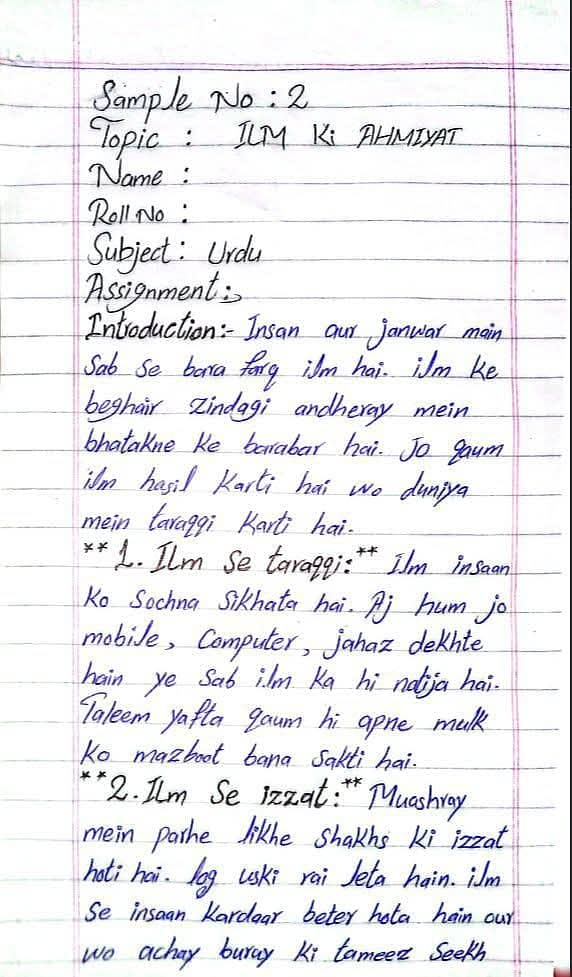 Sample No : 2
Topic : ILM Ki AHMIYAT
Name :
Roll No :
Subject : Urdu
Assignment :-
Introduction:- Insan aur janwar main
Sab se bara farq ilm hai. ilm ke
beghair zindagi andheray mein
bhatakne ke barabar hai. Jo qaum
ilm hasil Karti hai wo duniya
mein taraqqi Karti hai.
** 1. Ilm Se taraqqi:** Ilm insaan
Ko Sochna Sikhata hai. Aj hum jo
mobile, Computer, jahaz dekhte
hain ye Sab ilm Ka hi natija hai.
Taleem yafta qaum hi apne mulk
Ko mazboot bana Sakti hai.
**2. Ilm Se izzat:** Muashray
mein parhe likhe Shakhs Ki izzat
hoti hai. log uski rai leta hain. ilm
Se insaan Kardaar beter hota hain aur
wo achay buray Ki tameez Seekh